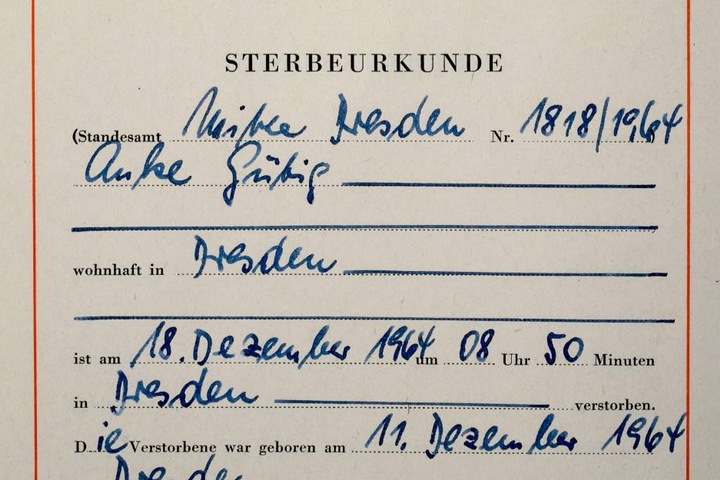 STERBEURKUNDE
(Standesamt Mitte Dresden Nr. 1818/1964)
Anke Gütig
wohnhaft in Dresden
ist am 18. Dezember 1964 um 08 Uhr 50 Minuten
in Dresden verstorben.
Die Verstorbene war geboren am 11. Dezember 1964
Dresden